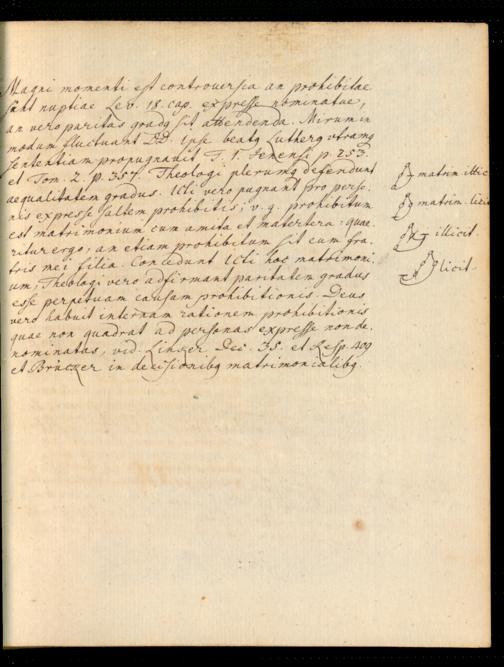 Magni momenti est controversia an prohibitae
sint nuptiae Lev. 18. cap. expresse nominatae,
an vero paritas gradq sit attendenda. Mirum in
modum fluctuant DD. Ipse beatq Lutherq utramq
sententiam propugnavit T. 1. Jenensi p. 253.
et Tom. 2. p. 357. Theologi plerumq defendunt
aequalitatem gradus. ICti vero pugnant pro perso-
nis expresse saltem prohibitis; v. g. prohibitum
est matrimonium cum amita et matertera: quae-
ritur ergo, an etiam prohibitum sit cum fra-
tris mei filia. Concedunt ICti hoc matrimoni-
um; Theologi vero adfirmant paritatem gradus
esse perpetuam causam prohibitionis. Deus
vero habuit internam rationem prohibitionis
quae non quadrat ad personas expresse non de-
nominatas, vid. Dec. 35. et Resp. 409
et in decisionibq matrimonialibq.
matrim. illic
matrim. licit
illicit.
licit.